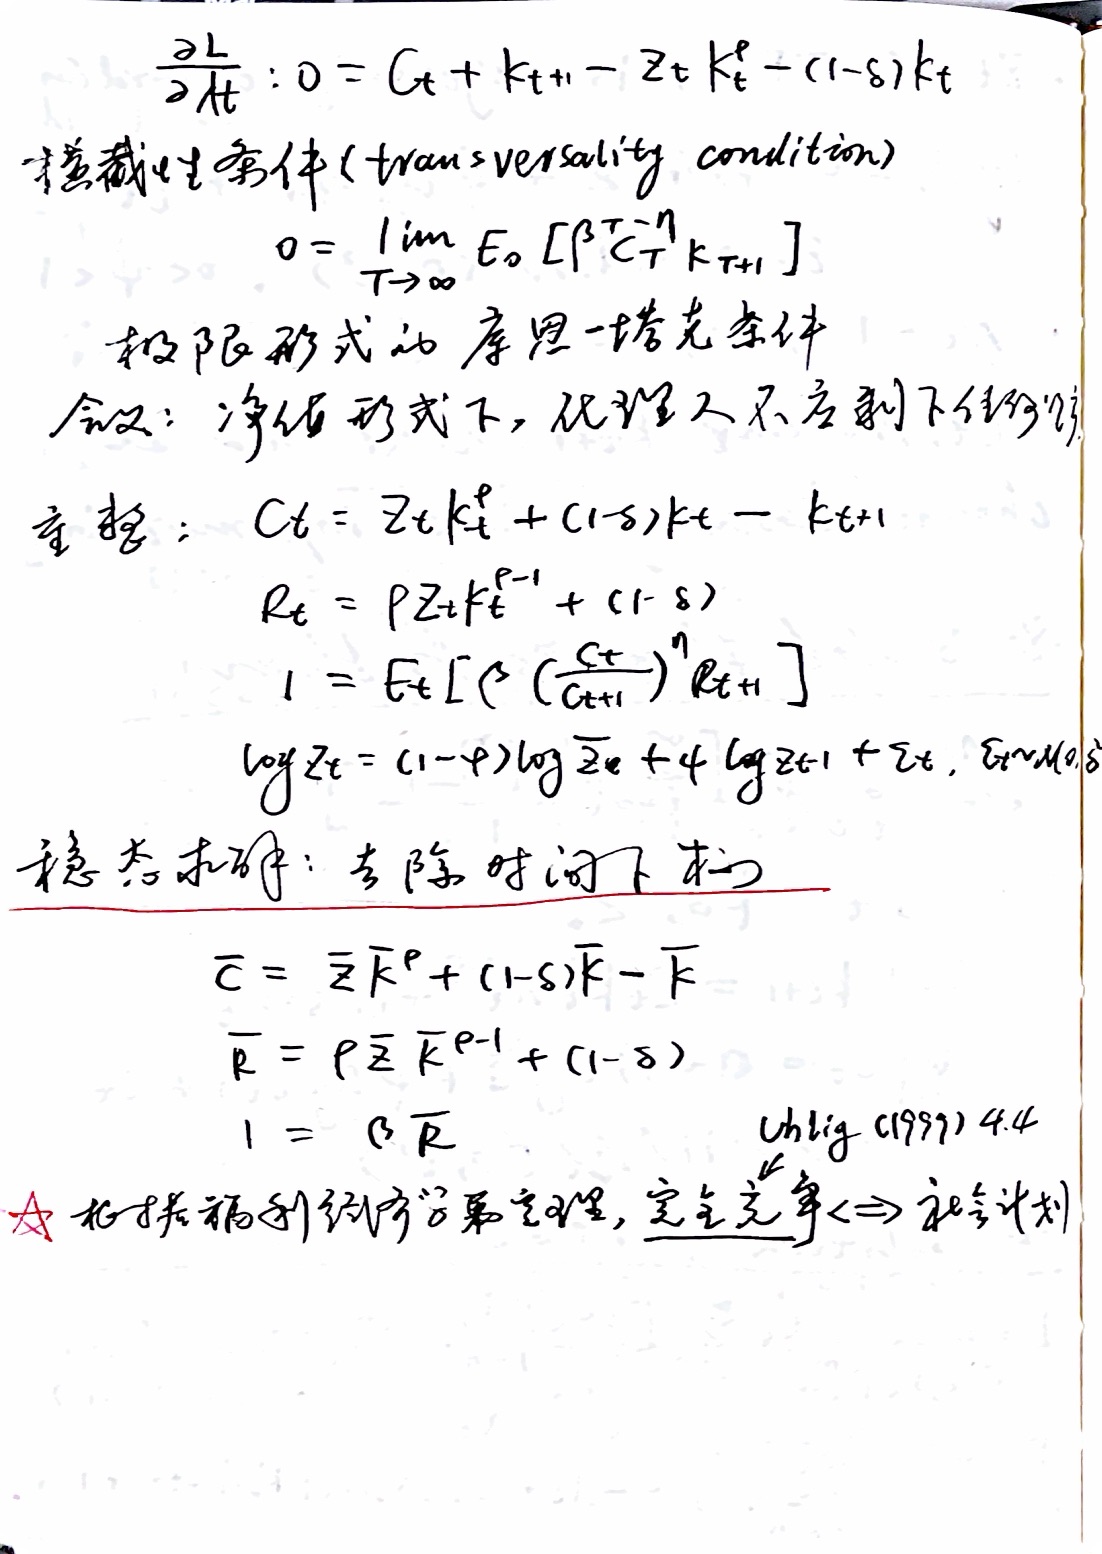 ∂L/∂λt : 0 = Ct + kt+1 − Zt kt^ρ − (1−δ)kt
横截性条件(transversality condition)
0 = lim T→∞ E0 [β^T CT^−η kT+1]
极限形式的库恩-塔克条件
含义：净值形式下，代理人不应剩下任何
重整：Ct = Zt kt^ρ + (1−δ)kt − kt+1
Rt = ρZt kt^ρ−1 + (1−δ)
1 = Et[β (Ct/Ct+1)^η Rt+1]
log Zt = (1−φ)log Z̄ + φ log Zt−1 + Σt,
稳态求解：去除时间下标
C̄ = Z̄ K̄^ρ + (1−δ)K̄ − K̄
R̄ = ρ Z̄ K̄^ρ−1 + (1−δ)
1 = βR̄
Uhlig (1999) 4.4
☆ 根据福利经济学第定理，完全竞争<=>社会计划